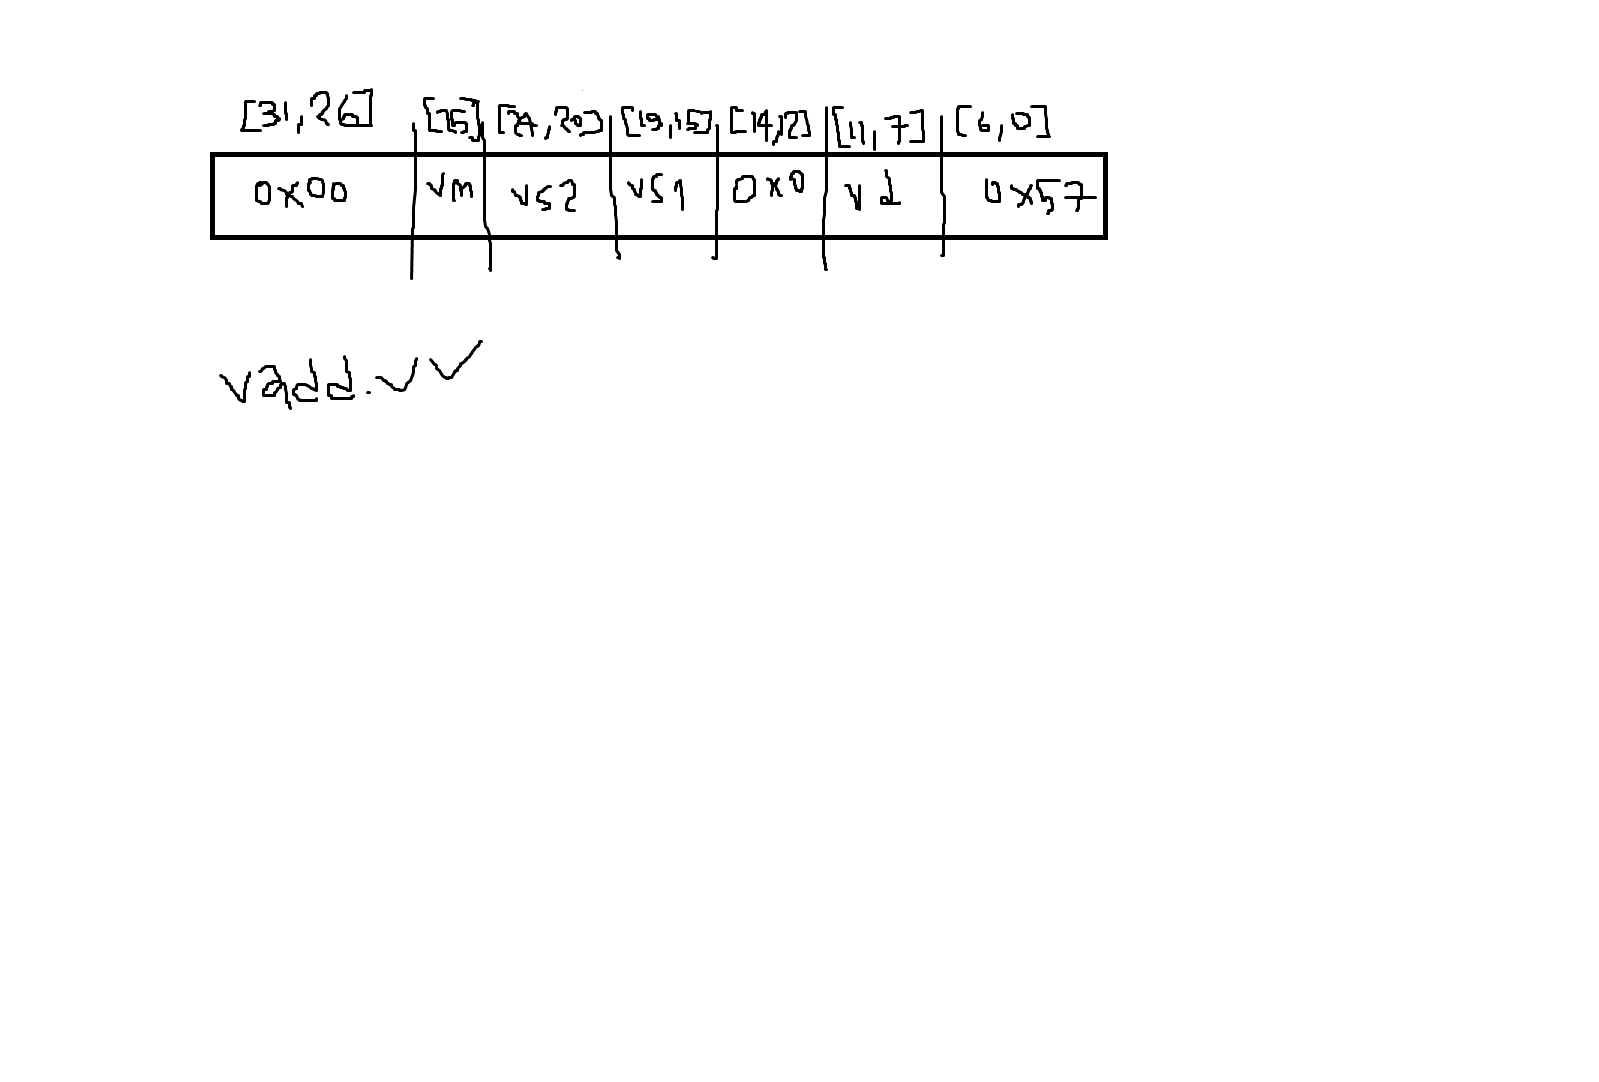 [31,26] [25] [24,20] [19,15] [14,12] [11,7] [6,0]
0x00 vm vs2 vs1 0x0 vd 0x57
vadd.vv